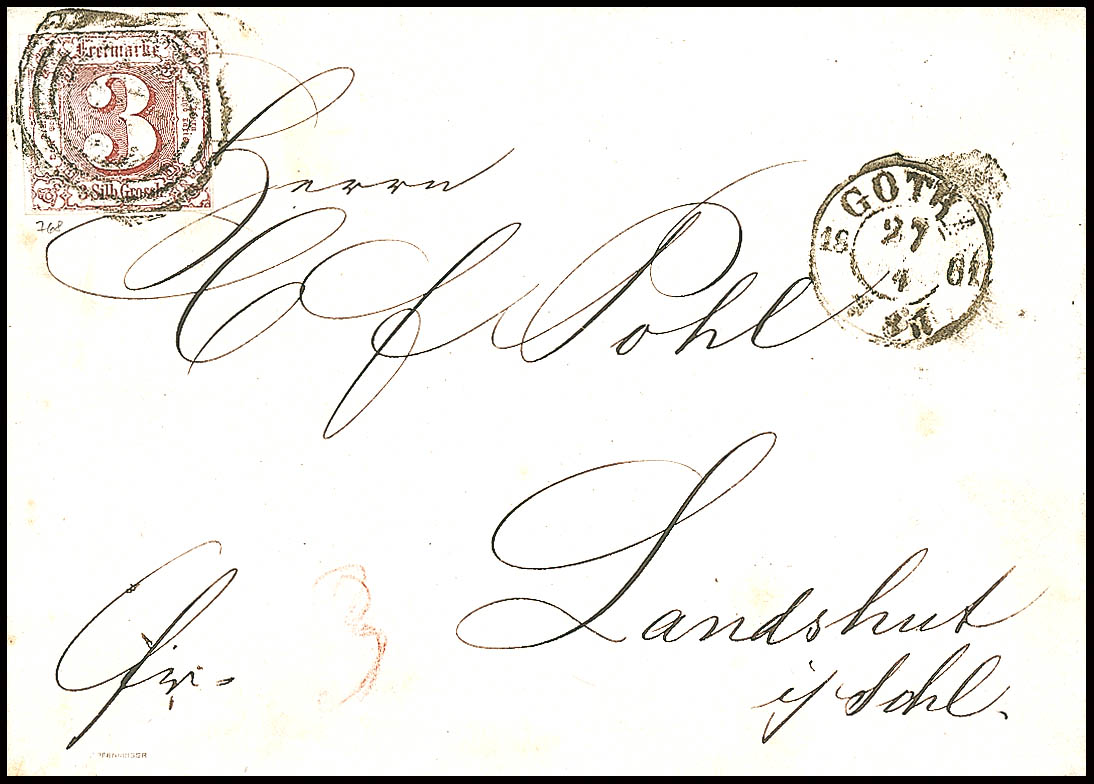 Freimarke
3
3 Silb. Grosch.
268
Herrn
C f Pohl
GOTHA
27
18 4 61
Landshut
i/ Schl.
fr.
3